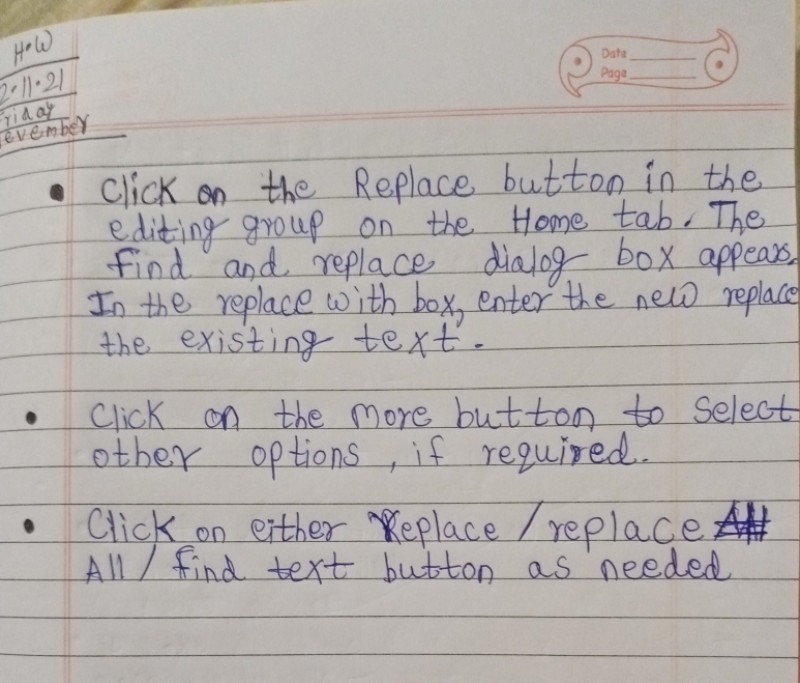 H.W
2.11.21
riday
evember
Date
Page
• Click on the Replace button in the
editing group on the Home tab. The
find and replace dialog box appears.
In the replace with box, enter the new replace
the existing text.
• Click on the more button to Select
other options, if required.
• Click on either Replace / replace
All / find text button as needed